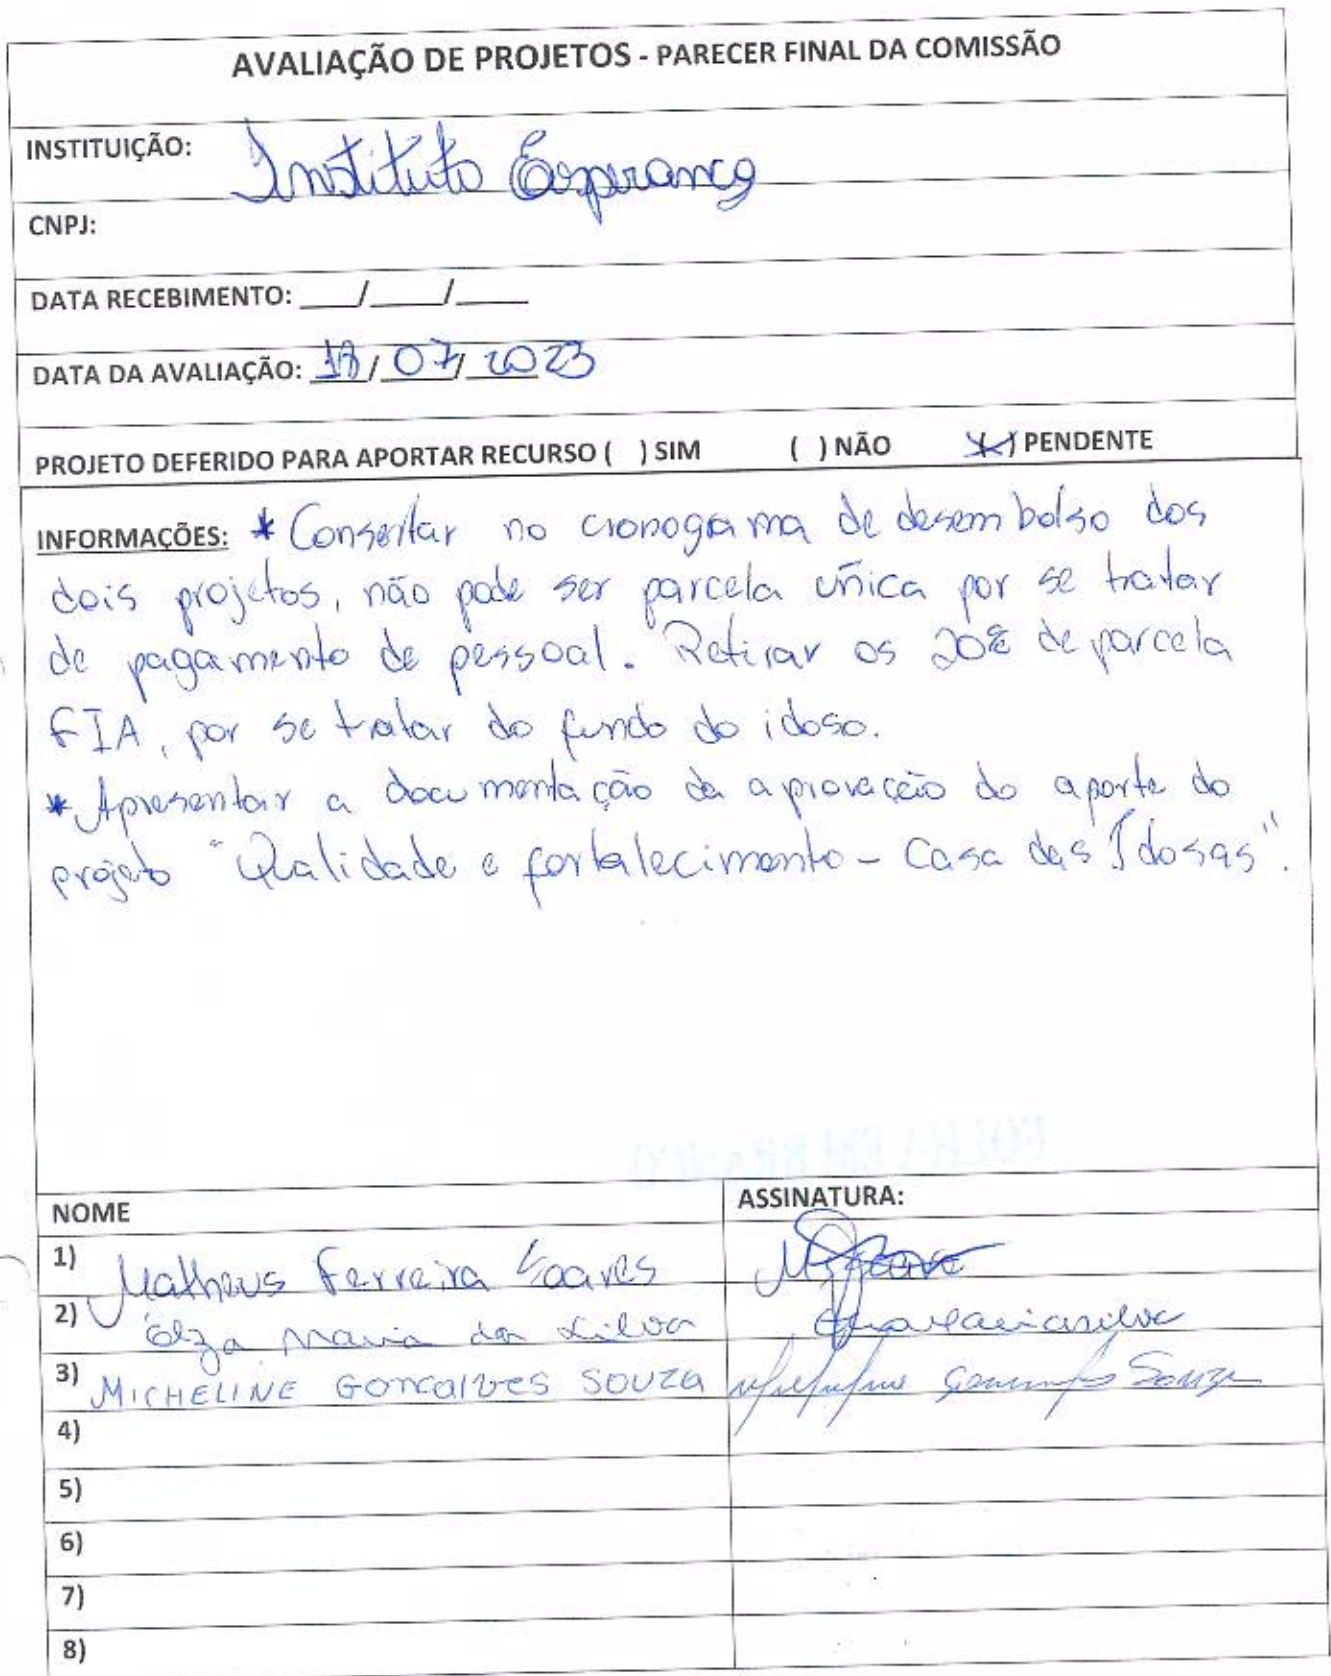 AVALIAÇÃO DE PROJETOS - PARECER FINAL DA COMISSÃO
INSTITUIÇÃO: Instituto Esperança
CNPJ:
DATA RECEBIMENTO: ___/___/___
DATA DA AVALIAÇÃO: 18/07/2023
PROJETO DEFERIDO PARA APORTAR RECURSO ( ) SIM ( ) NÃO (X) PENDENTE
INFORMAÇÕES: * Consertar no cronograma de desembolso dos
dois projetos, não pode ser parcela única por se tratar
de pagamento de pessoal. Retirar os 20% de parcela
FIA, por se tratar do fundo do idoso.
* Apresentar a documentação da aprovação do aporte do
projeto "Qualidade e fortalecimento - Casa das Idosas".
FOLHA EM BRANCO
NOME ASSINATURA:
1) Matheus Ferreira Soares
2) Elza Maria da Silva
3) MICHELINE GONCALVES SOUZA Souza
4)
5)
6)
7)
8)